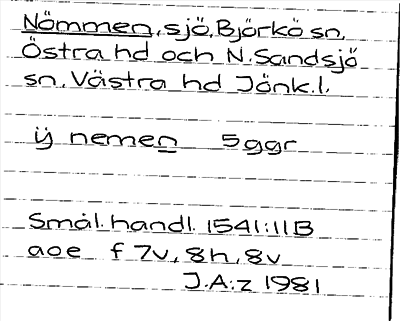 Nömmen, sjö, Björkö sn,
Östra hd och N. Sandsjö
sn, Västra hd Jönk.l.
ÿ nemen 5 ggr
Smål. handl. 1541:11B
aoe f 7v, 8h, 8v
J.A:z 1981